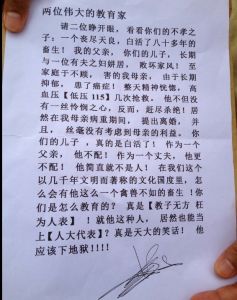 两位伟大的教育家
请二位睁开眼，看看你们的不孝之
子：一个丧尽天良，白活了八十多年的
畜生！我的父亲，你们的儿子，长期
与一位有夫之妇姘居，败坏家风！至
家庭于不顾，害的我母亲，由于长期
抑郁，患了癌症！整天精神恍惚，高
血压【低压 115】几次抢救，他不但没
有一丝怜悯之心，反而，赶尽杀绝！居
然在我母亲病重期间，提出离婚，并
且，丝毫没有考虑到母亲的利益。你
们的儿子，真的是白活了！作为一个
父亲，他不配！作为一个丈夫，他更
不配！他简直就不是人！在我们这个
以几千年文明而著称的文化国度里，怎
么会有他这么一个禽兽不如的畜生！你
们是怎么教育的？真是【教子无方 枉
为人表】！就他这种人，居然也能当
上【人大代表】？真是天大的笑话！他
应该下地狱!!!!